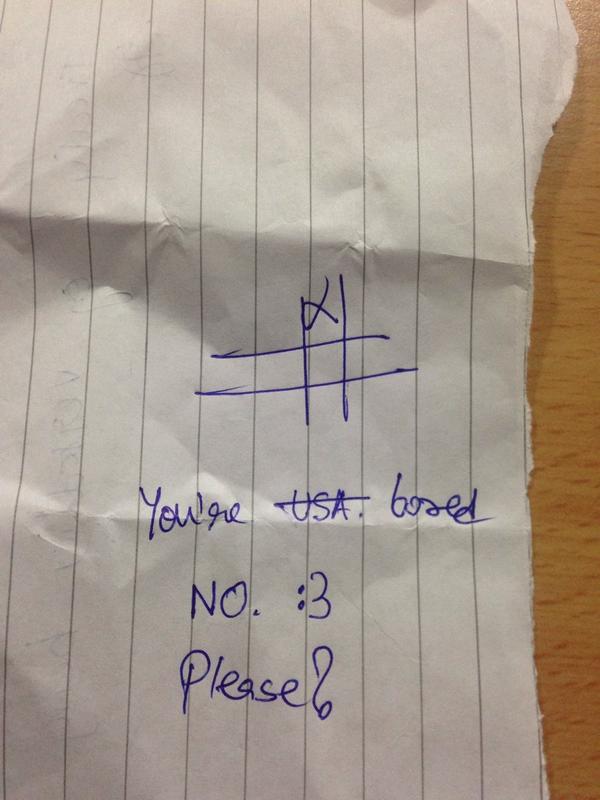 X
You're USA. bored
NO. :3
Please?